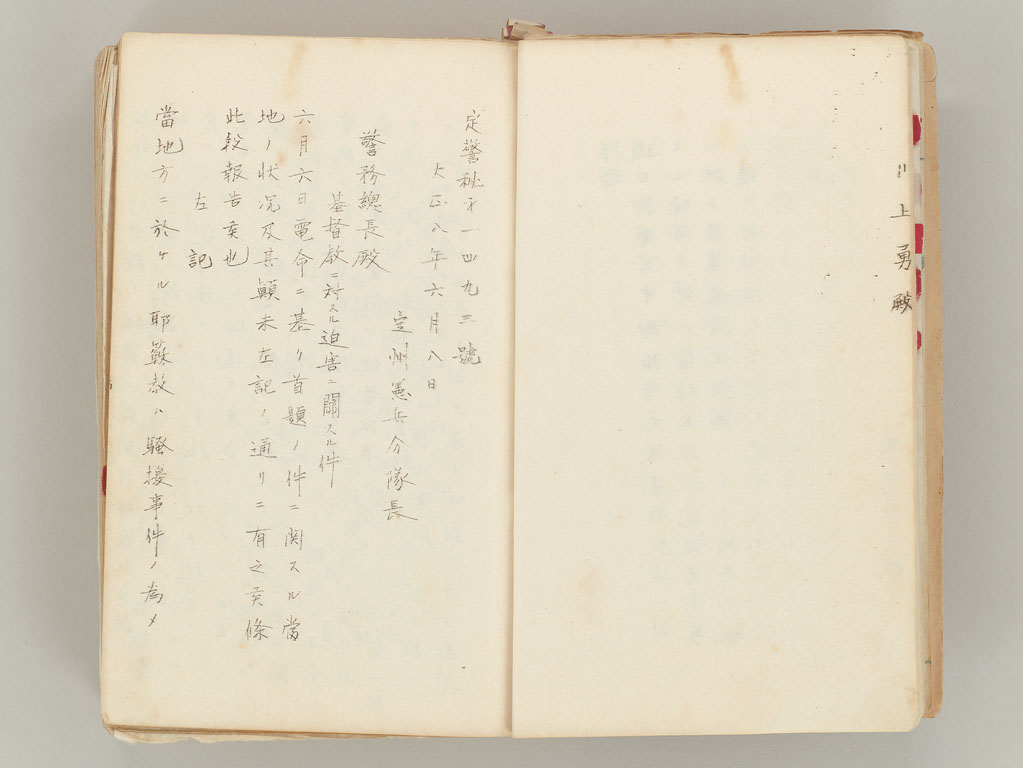 川上勇殿
定警秘才一四九三號
大正八年六月八日
定州憲兵分隊長
警務總長殿
基督敎ニ対スル迫害ニ關スル件
六月六日電命ニ基リ首題ノ件ニ関スル當
地ノ状况及其顛末左記ノ通リニ有之候條
此段報告候也
左記
當地方ニ於ケル耶蘇教ハ騒擾事件ノ為メ